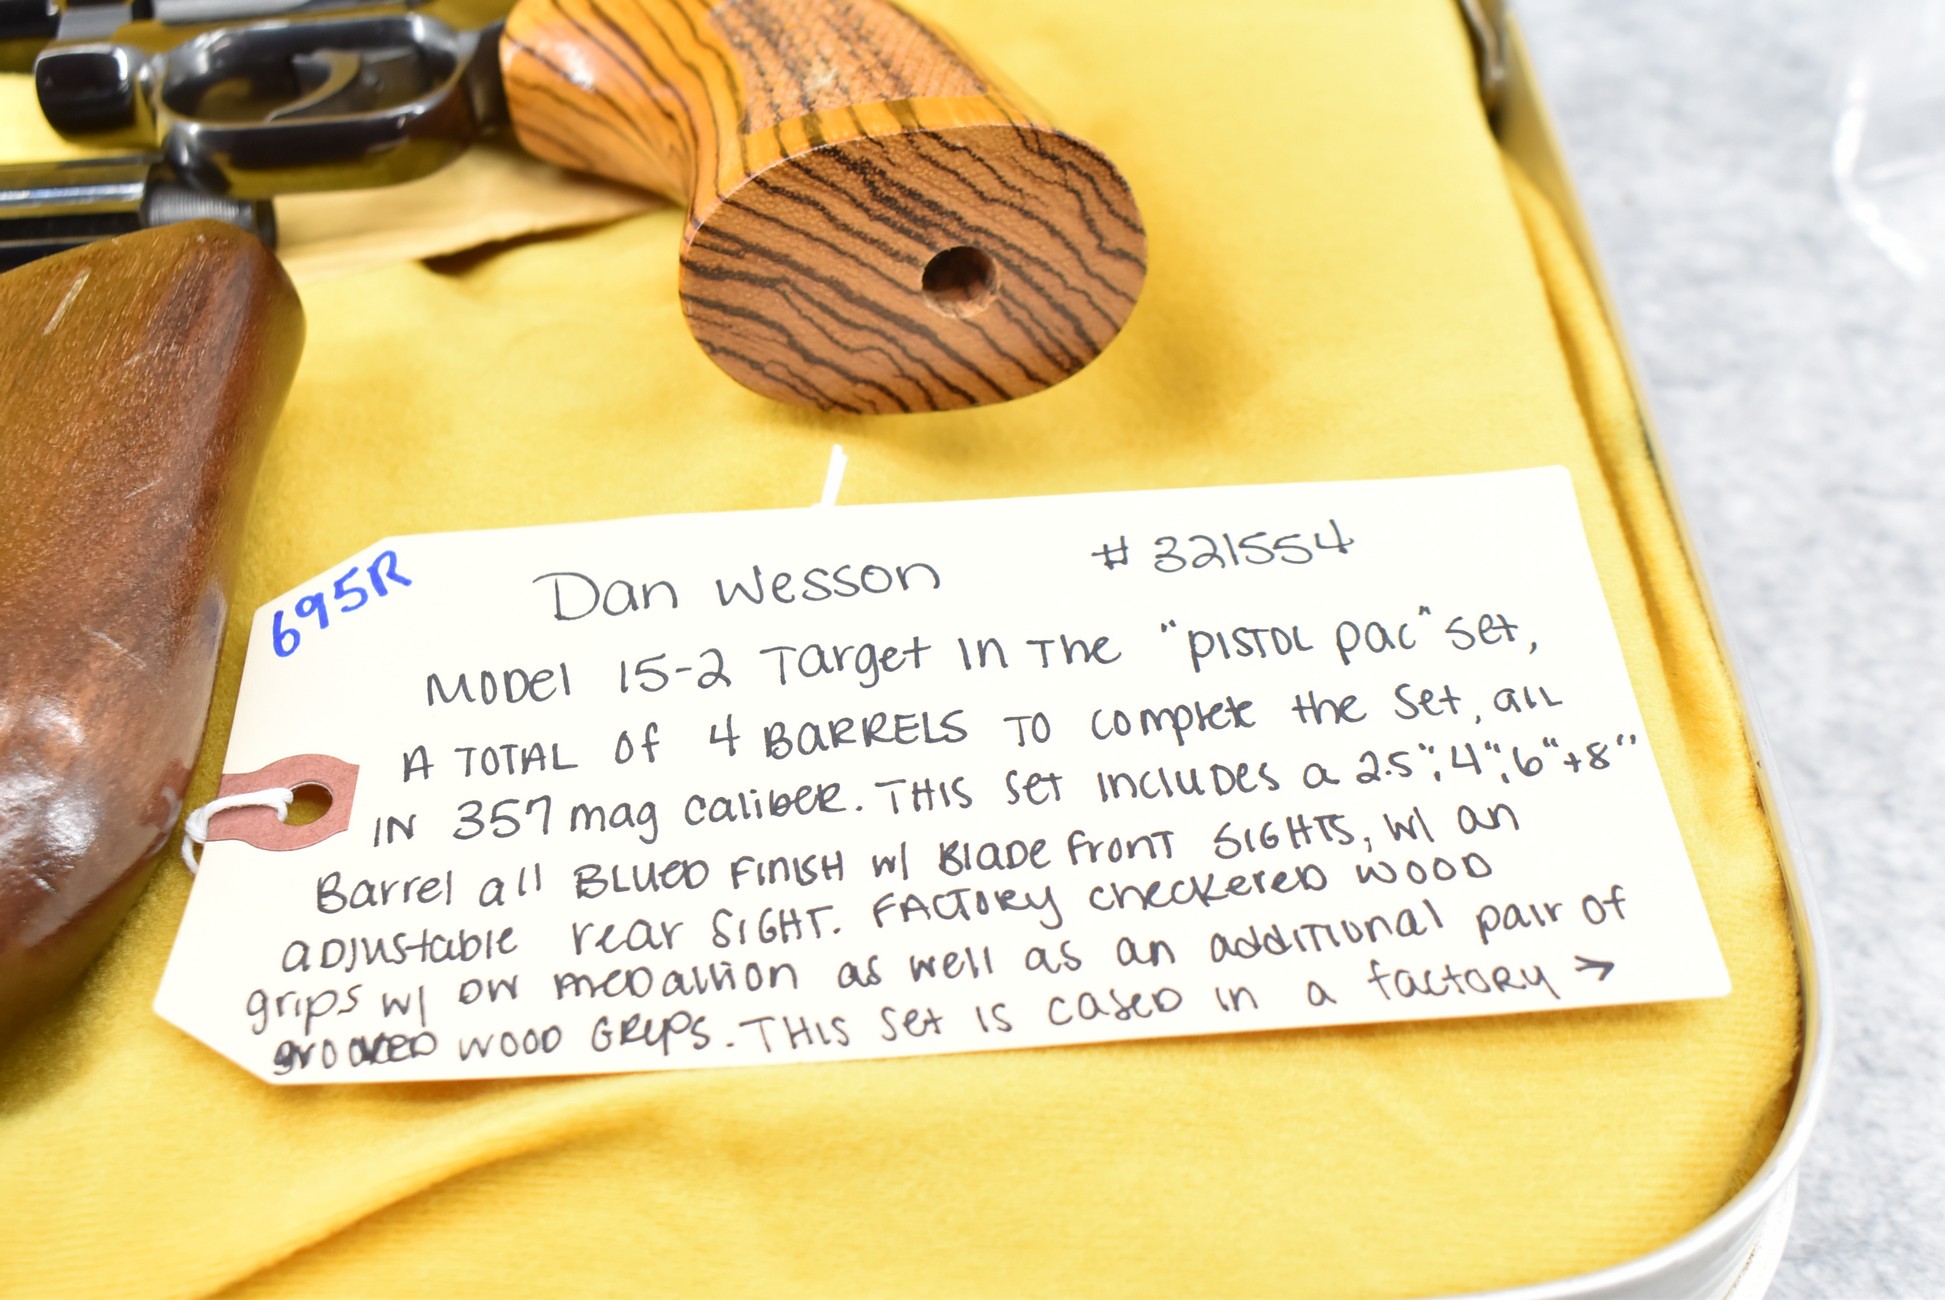 695R
Dan Wesson # 321554
MODEL 15-2 Target IN THE "PISTOL PAC" Set,
A TOTAL OF 4 BARRELS TO COMPLETE the Set, all
IN 357 mag caliber. THIS SET INCLUDES a 2.5", 4", 6" + 8"
Barrel all BLUED FINISH w/ BLADE FRONT SIGHTS, w/ an
ADJUSTABLE rear SIGHT. FACTORY CHECKERED WOOD
grips w/ DW medallion as well as an additional pair of
grooved WOOD GRIPS. THIS Set IS CASED IN a factory →